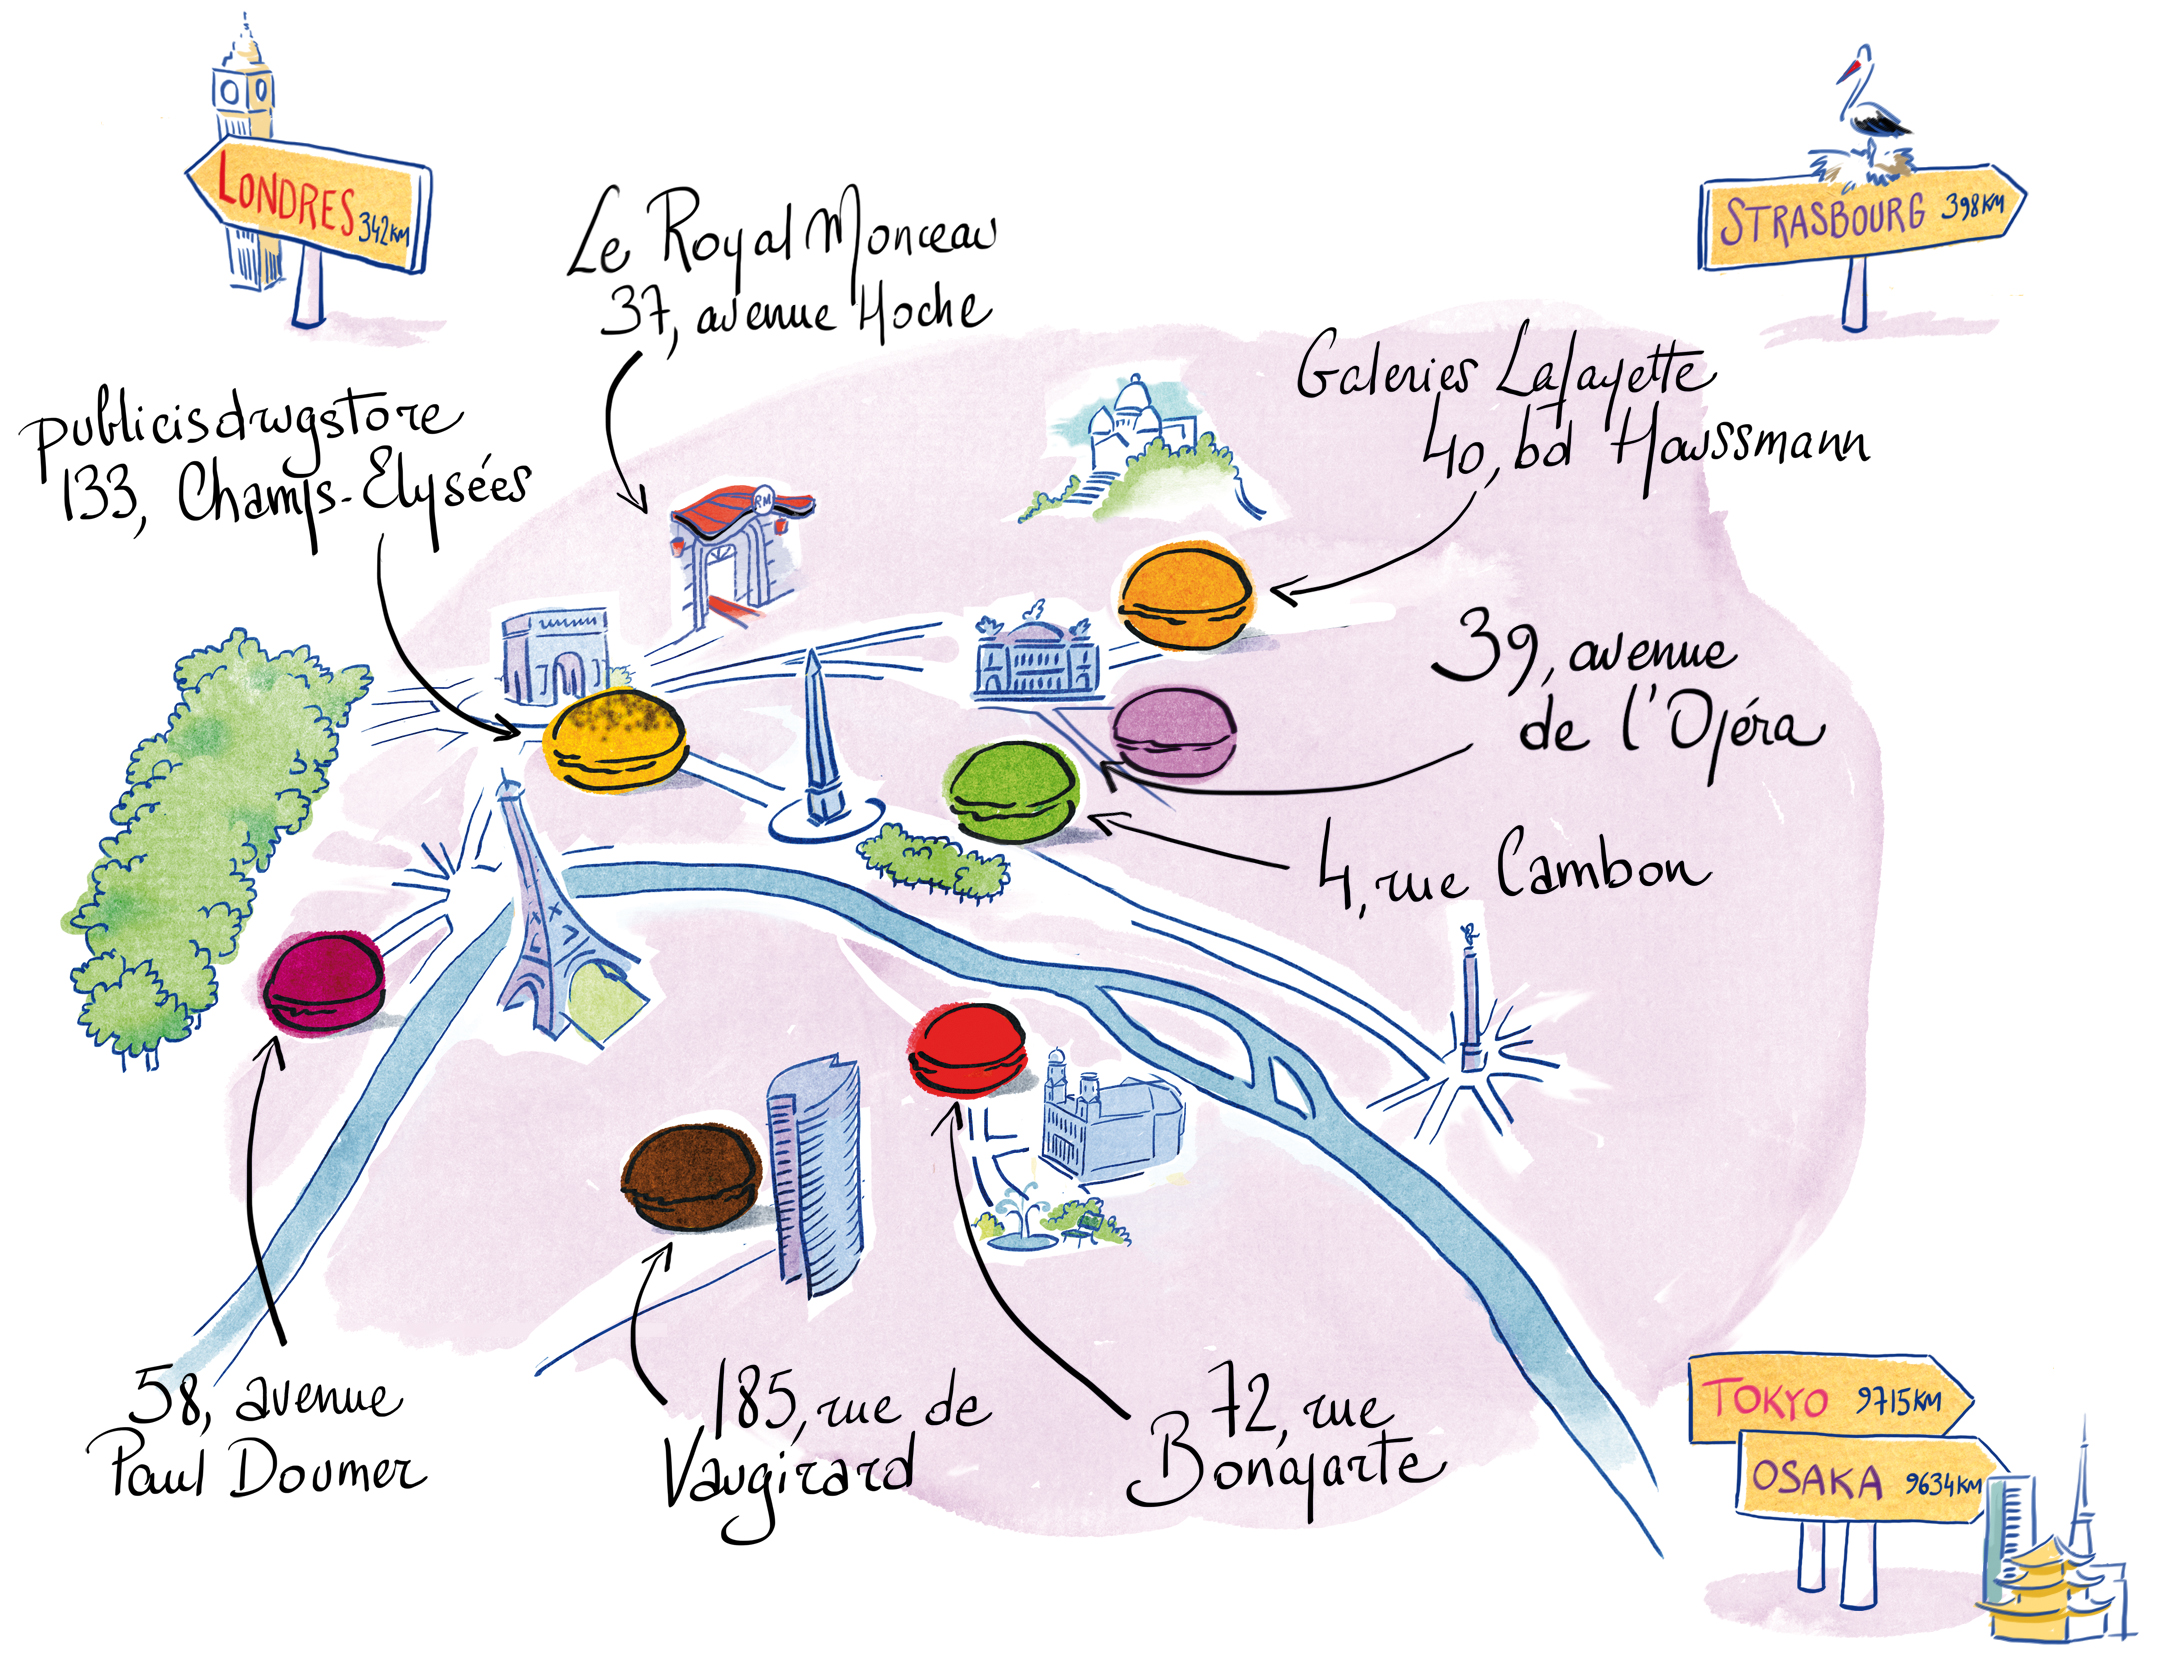 LONDRES 342KM
STRASBOURG 398KM
Le Royal Monceau
37, avenue Hoche
Galeries Lafayette
40, bd Haussmann
publicisdrugstore
133, Champs-Elysées
RM
39, avenue
de l'Opéra
4, rue Cambon
58, avenue
Paul Doumer
185, rue de
Vaugirard
72, rue
Bonaparte
TOKYO 9715KM
OSAKA 9634KM